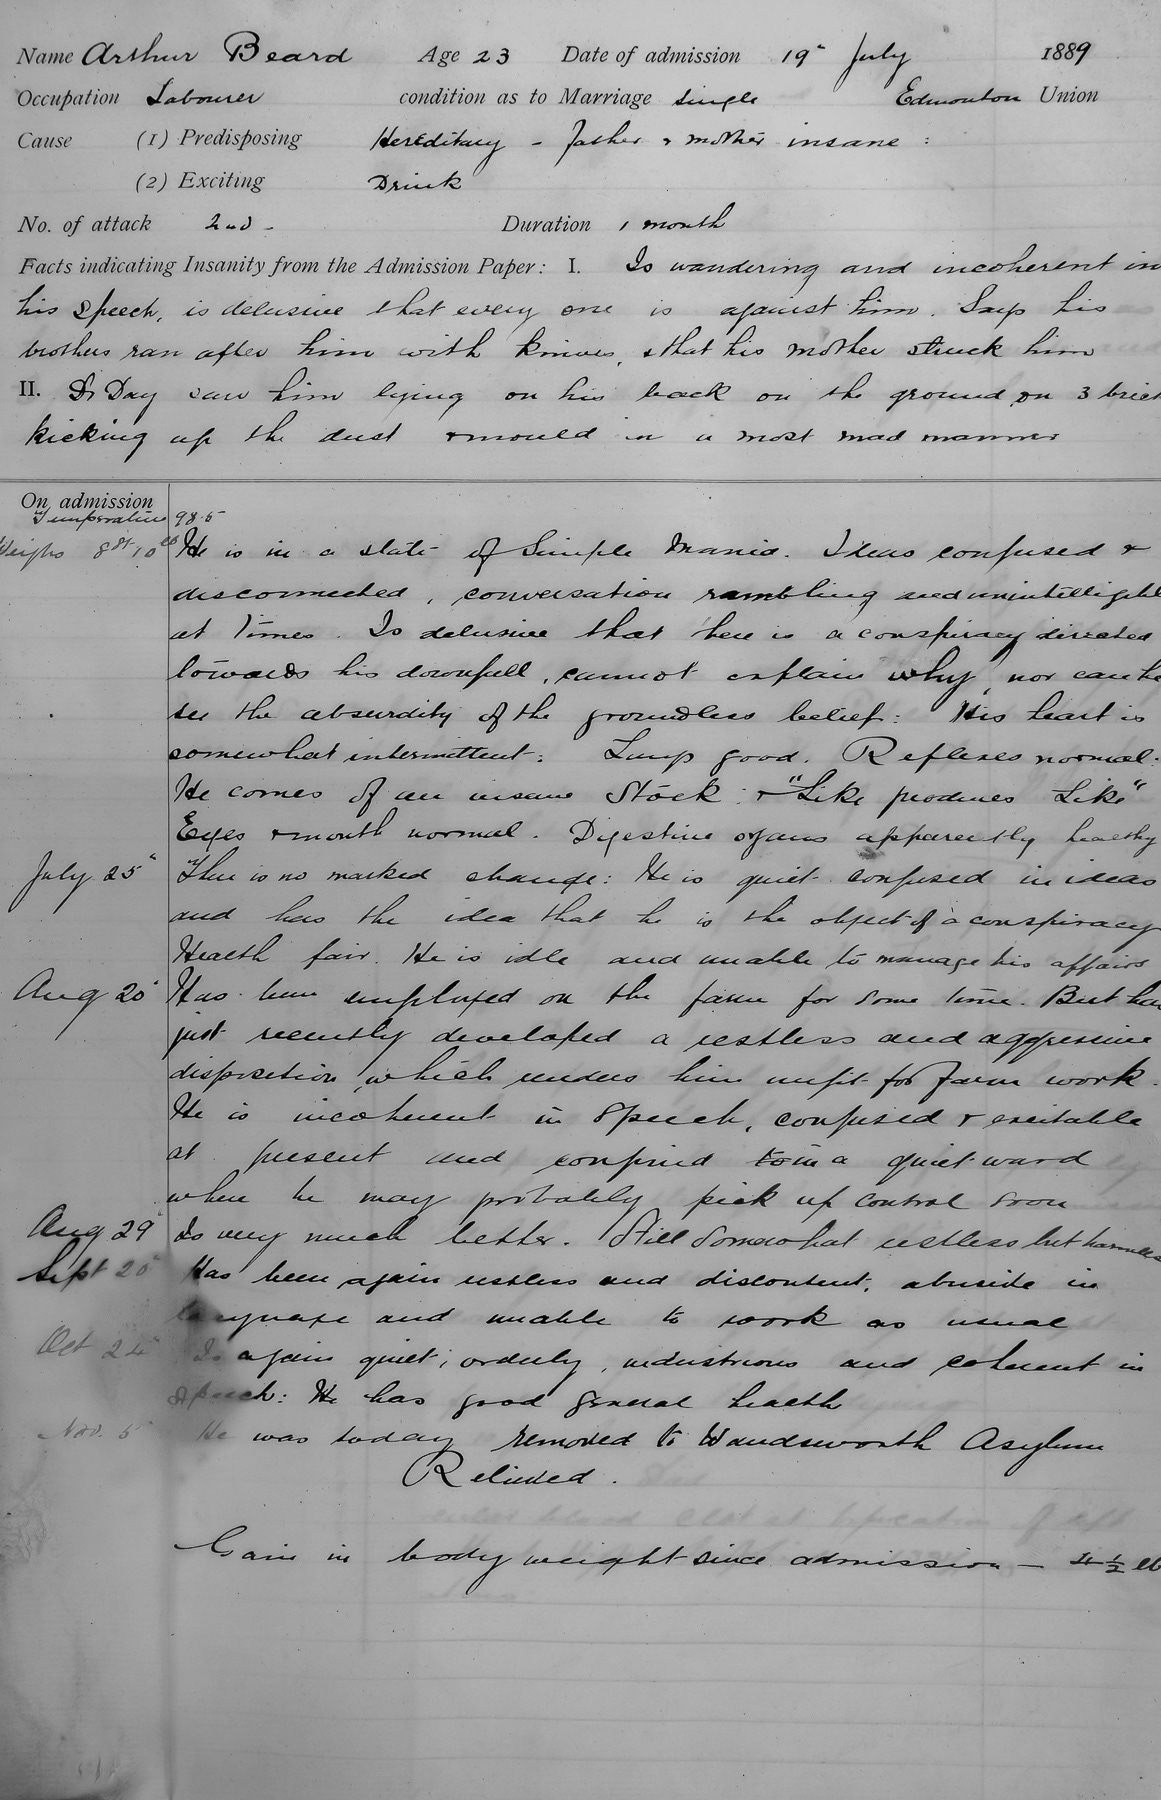 Name Arthur Beard Age 23 Date of admission 19" July 1889
Occupation Labourer condition as to Marriage Single Edmonton Union
Cause (1) Predisposing Hereditary - father & mother insane :
(2) Exciting Drink
No. of attack 2nd - Duration 1 month
Facts indicating Insanity from the Admission Paper: I. Is wandering and incoherent in
his speech, is delusive that every one is against him. Says his
brothers ran after him with knives, & that his mother struck him
II. Dr Day saw him lying on his back on the ground on 3 brick
kicking up the dust & mould in a most mad manner
On admission
Temperature 98.5
Weighs 8st 10lb He is in a state of Simple Mania. Ideas confused &
disconnected, conversation rambling and unintelligible
at times. Is delusive that there is a conspiracy directed
towards his downfall, cannot explain why, nor can he
see the absurdity of the groundless belief: His heart is
somewhat intermittent: Lungs good. Reflexes normal.
He comes of an insane Stock: & "Like produces Like"
Eyes & mouth normal. Digestive organs apparently healthy
July 25" There is no marked change: He is quiet confused in ideas
and has the idea that he is the object of a conspiracy
Health fair. He is idle and unable to manage his affairs
Aug 20" Has been employed on the farm for some time. But has
just recently developed a restless and aggressive
disposition, which renders him unfit for farm work.
He is incoherent in speech, confused & excitable
at present and confined to in a quiet ward
where he may probably pick up control soon
Aug 29" Is very much better. Still somewhat restless but harmless
Sept 20" Has been again restless and discontent, abusive in
language and unable to work as usual
Oct 24" Is again quiet, orderly, industrious and coherent in
speech: He has good general health
Nov. 5" He was today removed to Wandsworth Asylum
Relieved.
Gain in body weight since admission — 4½ lb